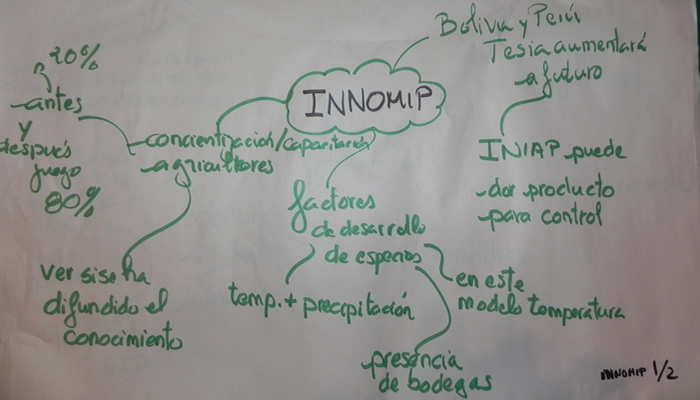 INNOMIP
Bolivia y Perú
Tesia aumentará
a futuro
INIAP puede
dar producto
para control
20%
antes
y
después
juego
80%
concientización/capacitación
agricultores
ver si se ha
difundido el
conocimiento
factores
de desarrollo
de especies
temp. + precipitación
presencia
de bodegas
en este
modelo temperatura
INNOMIP 1/2